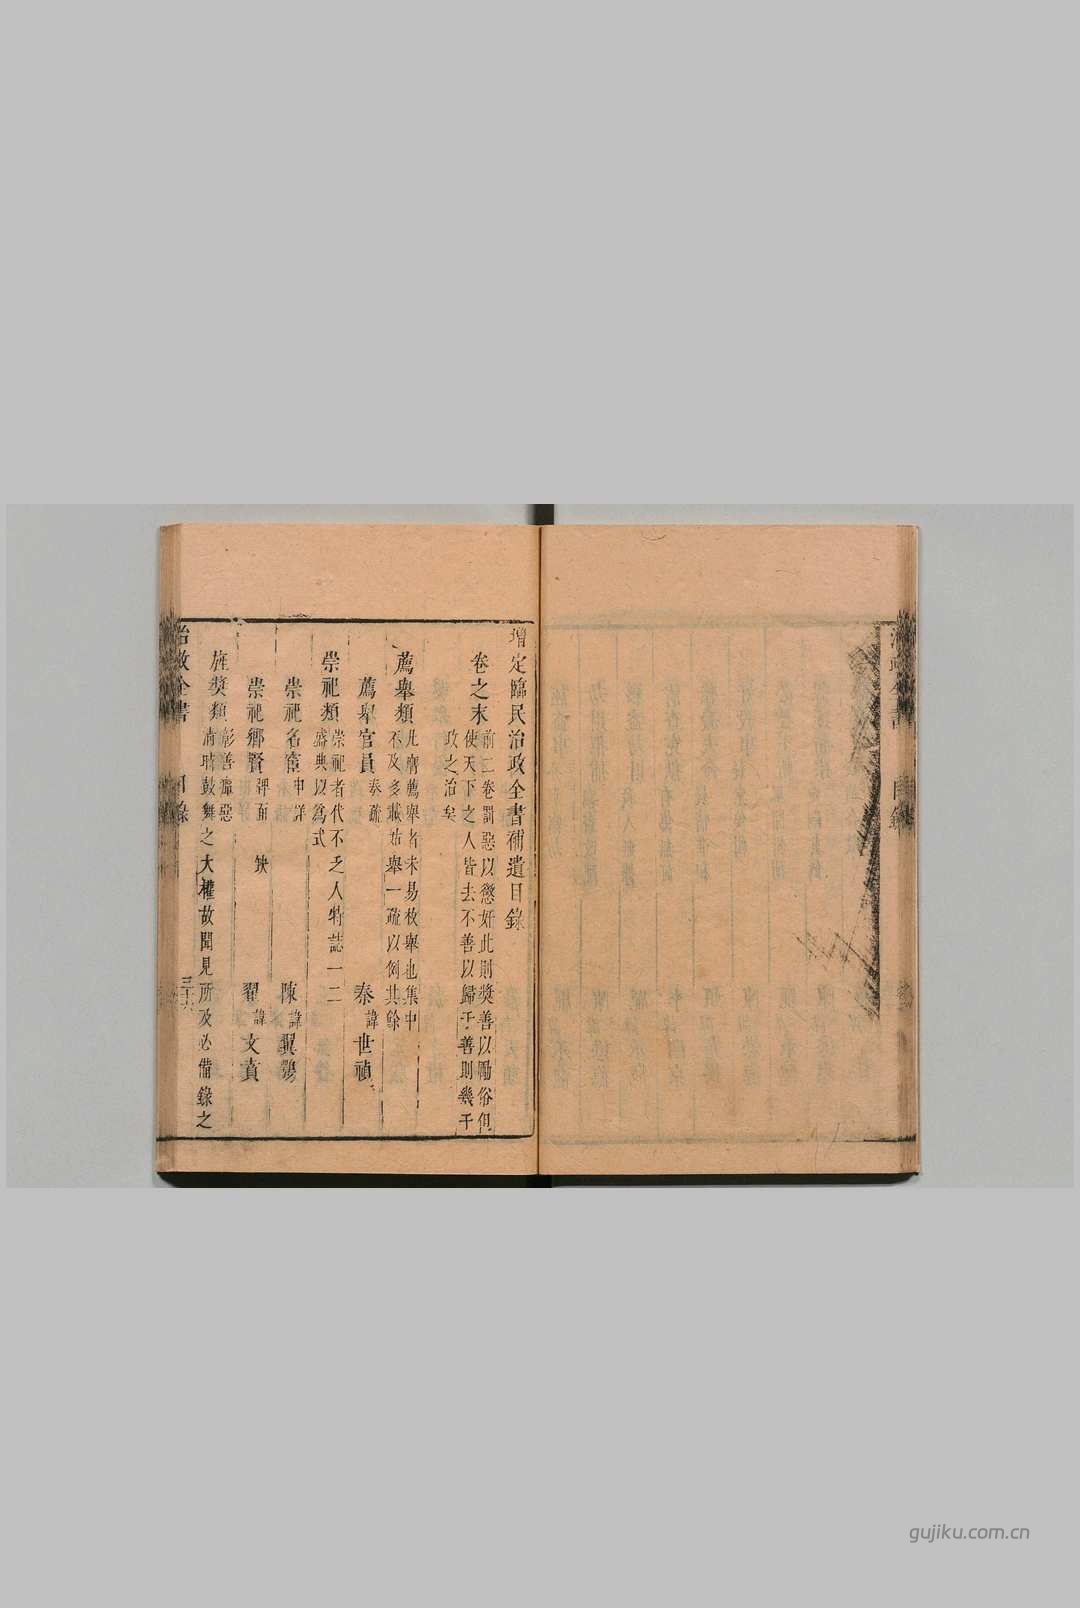 增定臨民治政全書補遺目錄
卷之末
前二卷罰惡以懲奸此則獎善以勵俗但
使天下之人皆去不善以歸于善則幾于
政之治矣
薦舉類
凡膺薦舉者未易枚舉也集中
不及多載始舉一疏以例其餘
薦舉官員 奏疏 秦諱世禎
崇祀類
崇祀者代不乏人特誌一二
盛典以爲式
崇祀名宦 申詳 陳諱翼
崇祀鄉賢 評面 缺 翟諱文賁
旌獎類
彰善癉惡
清時鼓舞之大權故聞見所及必備錄之
治政全書 目錄 三十六
全書 目錄
gujiku.com.cn